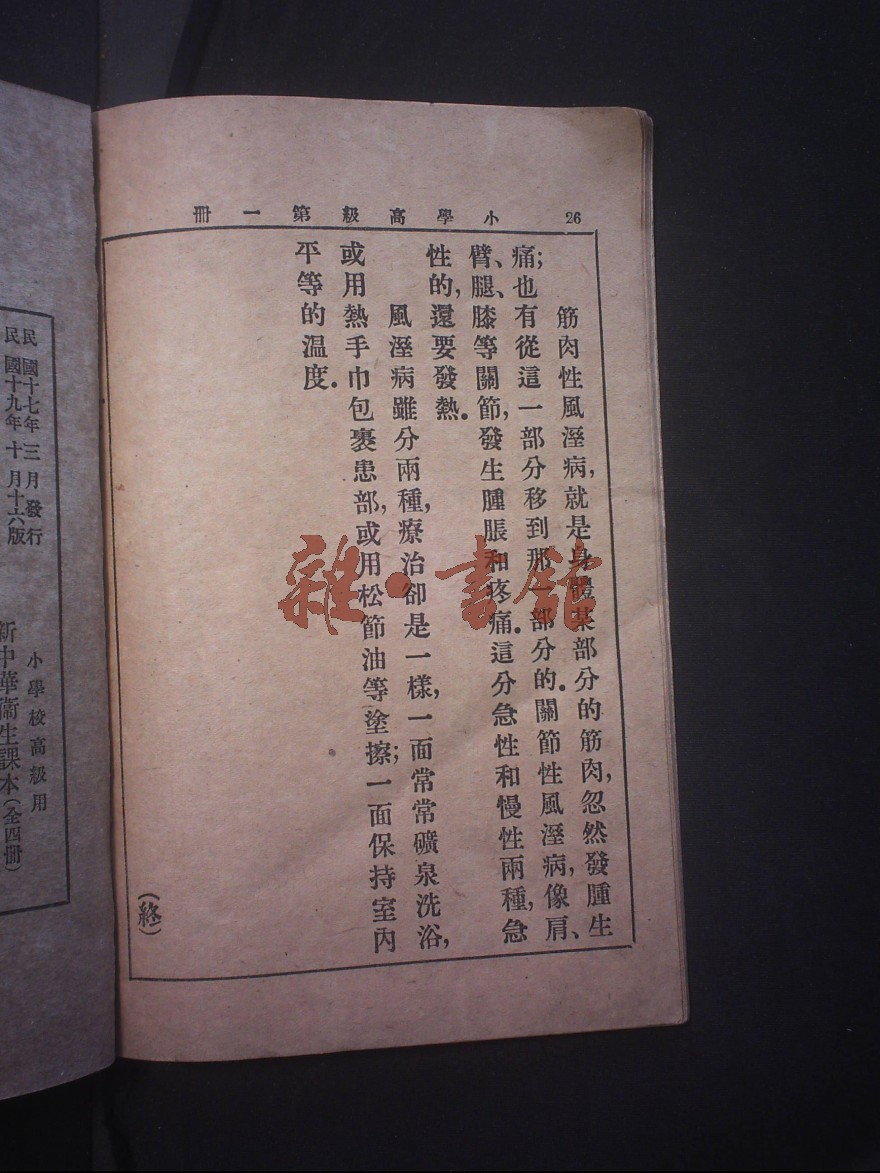 小學高級第一冊
26
筋肉性風溼病,就是身體某部分的筋肉,忽然發腫生
痛;也有從這一部分移到那一部分的.關節性風溼病,像肩、
臂、腿、膝等關節,發生腫脹和疼痛.這分急性和慢性兩種,急
性的,還要發熱.
風溼病雖分兩種,療治卻是一樣,一面常常礦泉洗浴,
或用熱手巾包裹患部,或用松節油等塗擦;一面保持室內
平等的温度.
(終)
雜·書館
民國十七年三月發行
民國十九年十月十六版
小學校高級用
新中華衞生課本(全四冊)